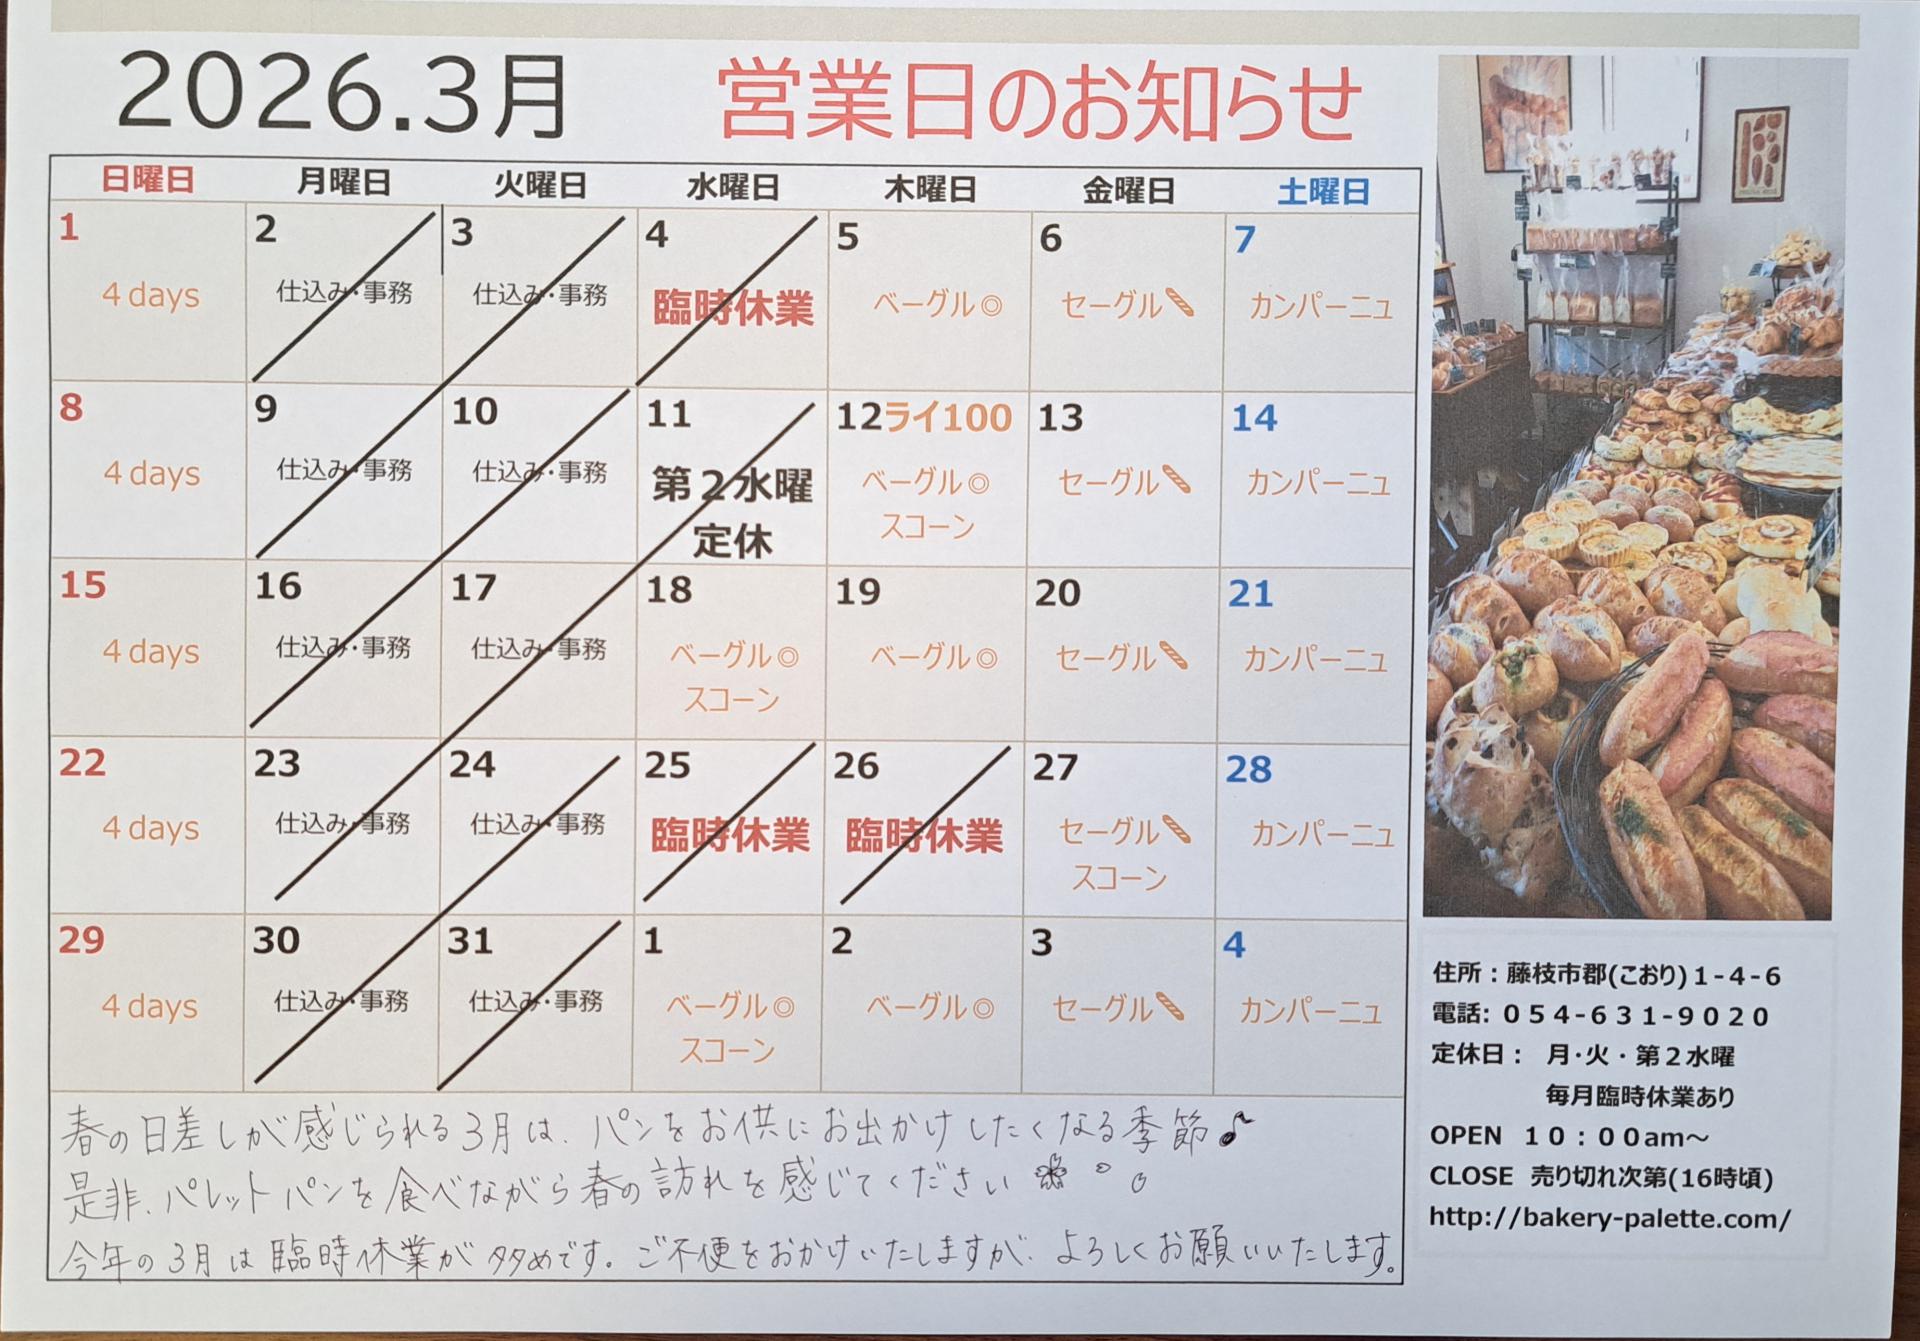 2026.3月 営業日のお知らせ
日曜日 月曜日 火曜日 水曜日 木曜日 金曜日 土曜日
1 2 3 4 5 6 7
4 days 仕込み・事務 仕込み・事務 臨時休業 ベーグル◎ セーグル🥖 カンパーニュ
8 9 10 11 12ライ100 13 14
4 days 仕込み・事務 仕込み・事務 第2水曜 ベーグル◎ セーグル🥖 カンパーニュ
定休 スコーン
15 16 17 18 19 20 21
4 days 仕込み・事務 仕込み・事務 ベーグル◎ ベーグル◎ セーグル🥖 カンパーニュ
スコーン
22 23 24 25 26 27 28
4 days 仕込み・事務 仕込み・事務 臨時休業 臨時休業 セーグル🥖 カンパーニュ
スコーン
29 30 31 1 2 3 4
4 days 仕込み・事務 仕込み・事務 ベーグル◎ ベーグル◎ セーグル🥖 カンパーニュ
スコーン
春の日差しが感じられる3月は、パンをお供にお出かけしたくなる季節♪
是非、パレットパンを食べながら春の訪れを感じてください
今年の3月は臨時休業が多めです。ご不便をおかけいたしますが、よろしくお願いいたします。
住所：藤枝市郡(こおり)1-4-6
電話：054-631-9020
定休日： 月・火・第2水曜
毎月臨時休業あり
OPEN 10：00am～
CLOSE 売り切れ次第(16時頃)
http://bakery-palette.com/